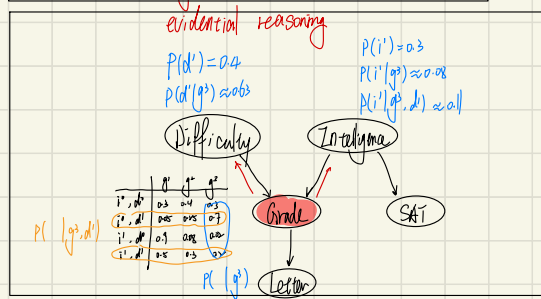 evidential reasoning
P(d¹) = 0.4
P(d¹|g³) ≈ 0.63
P(i¹) = 0.3
P(i¹|g³) ≈ 0.08
P(i¹|g³, d¹) ≈ 0.11
Difficulty
Intelligence
g¹ g² g³
i⁰, d⁰ 0.3 0.4 0.3
i⁰, d¹ 0.05 0.25 0.7
i¹, d⁰ 0.9 0.08 0.02
i¹, d¹ 0.5 0.3 0.2
P( |g³, d¹)
Grade
SAT
P( |g³)
Letter